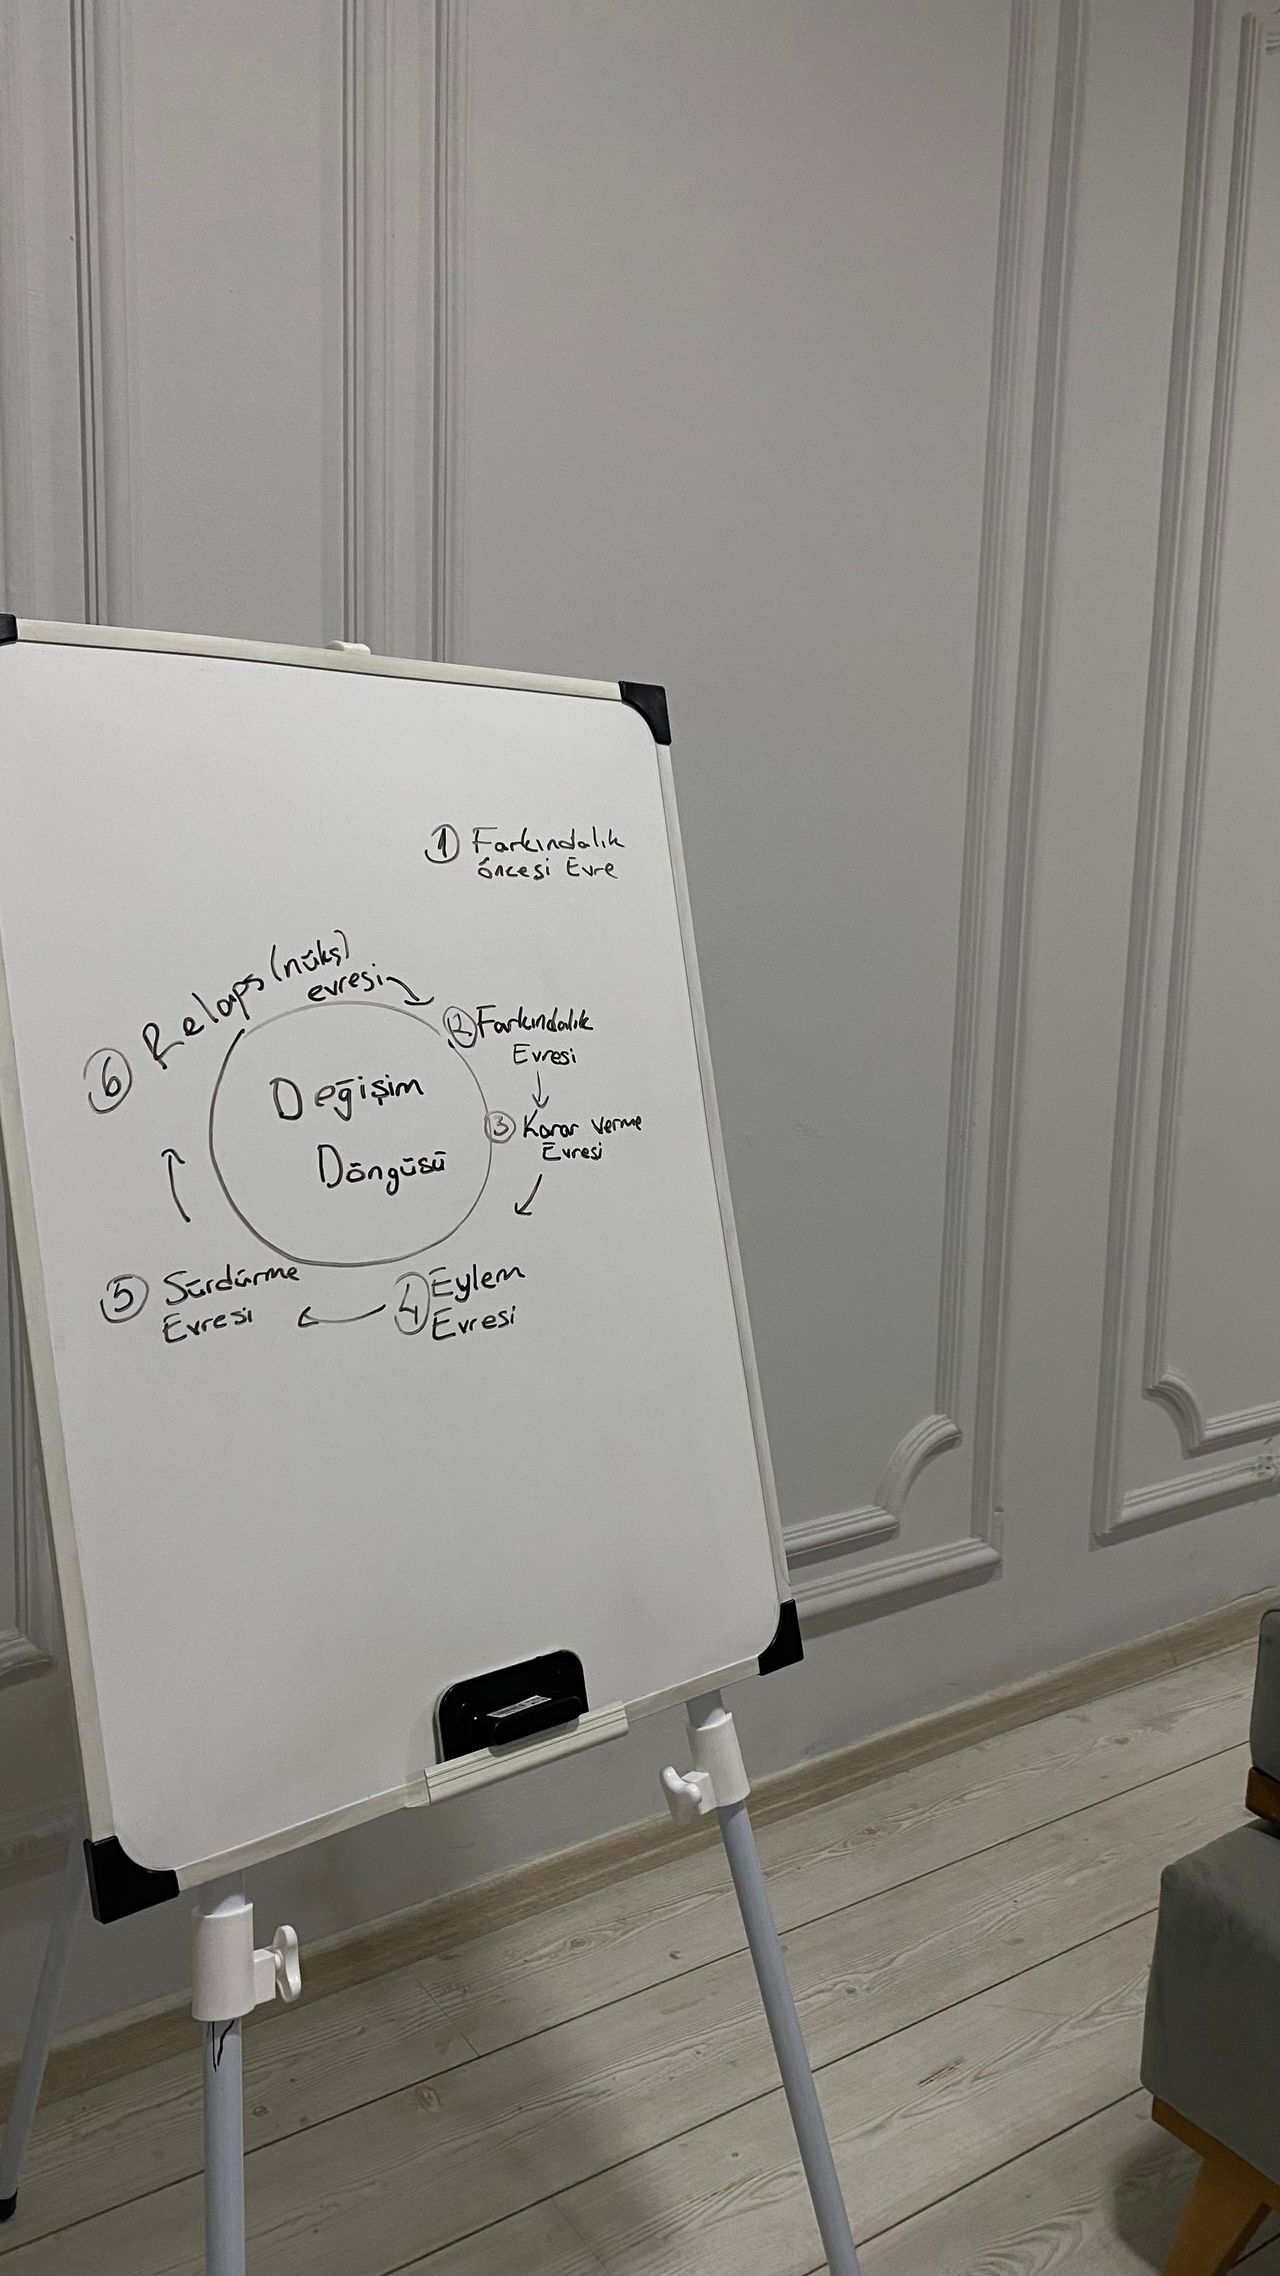 ① Farkındalık
öncesi Evre
② Farkındalık
Evresi
③ Karar verme
Evresi
④ Eylem
Evresi
⑤ Sürdürme
Evresi
⑥ Relaps (nüks)
evresi
Değişim
Döngüsü